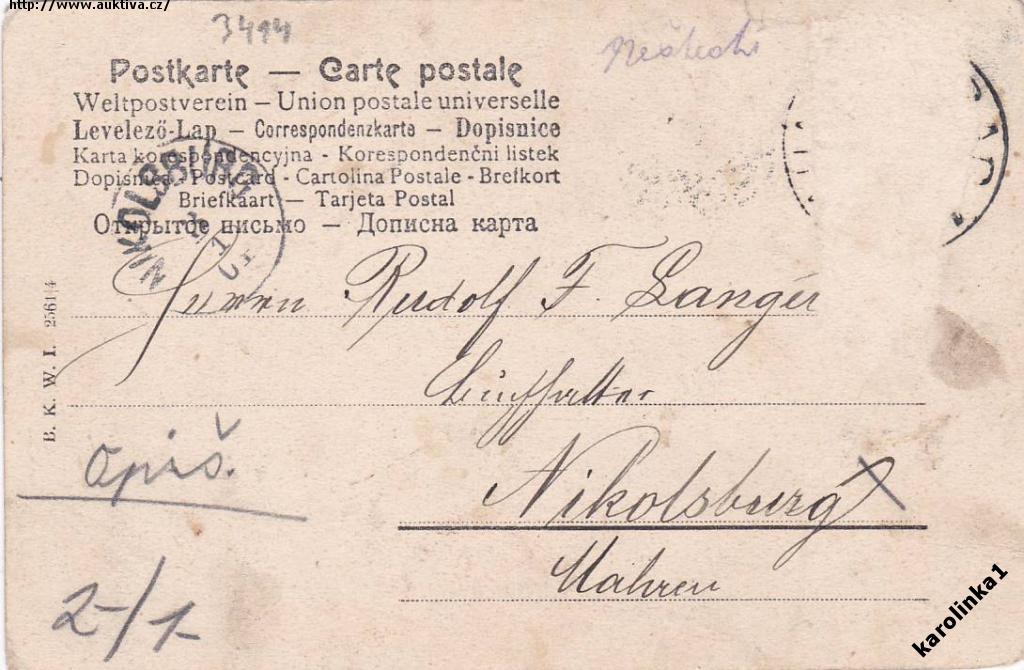 http://www.auktiva.cz/
3414
Postkarte — Carte postale
Weltpostverein – Union postale universelle
Levelező-Lap – Correspondenzkarte – Dopisnice
Karta korespondencyjna - Korespondenčni listek
Dopisnica - Postcard - Cartolina Postale - Brefkort
Briefkaart — Tarjeta Postal
Открытое письмо — Дописна карта
NIKOLSBURG
B. K. W. I. 2561/4
Herrn Rudolf F. Langer
Buchhalter
Nikolsburg
Mähren
opiš.
2-/1-
karolinka1